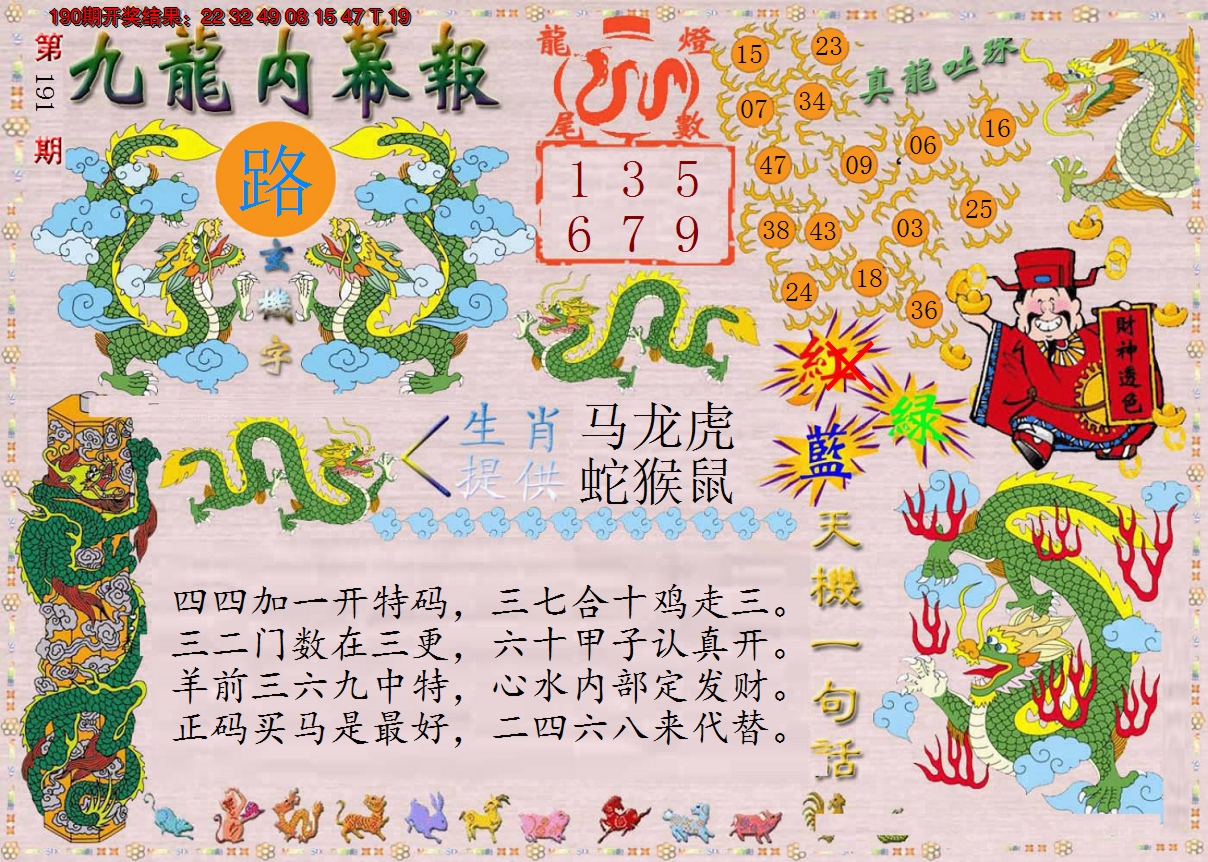 190期开奖结果：22 32 49 08 15 47 T 19
第191期
九龍内幕報
路
玄機字
龍燈
尾數
1 3 5
6 7 9
真龍吐珠
15
23
07
34
16
06
47
09
25
38
43
03
18
24
36
財神透色
紅
綠
藍
生肖
提供
马龙虎
蛇猴鼠
天機一句話
四四加一开特码，三七合十鸡走三。
三二门数在三更，六十甲子认真开。
羊前三六九中特，心水内部定发财。
正码买马是最好，二四六八来代替。